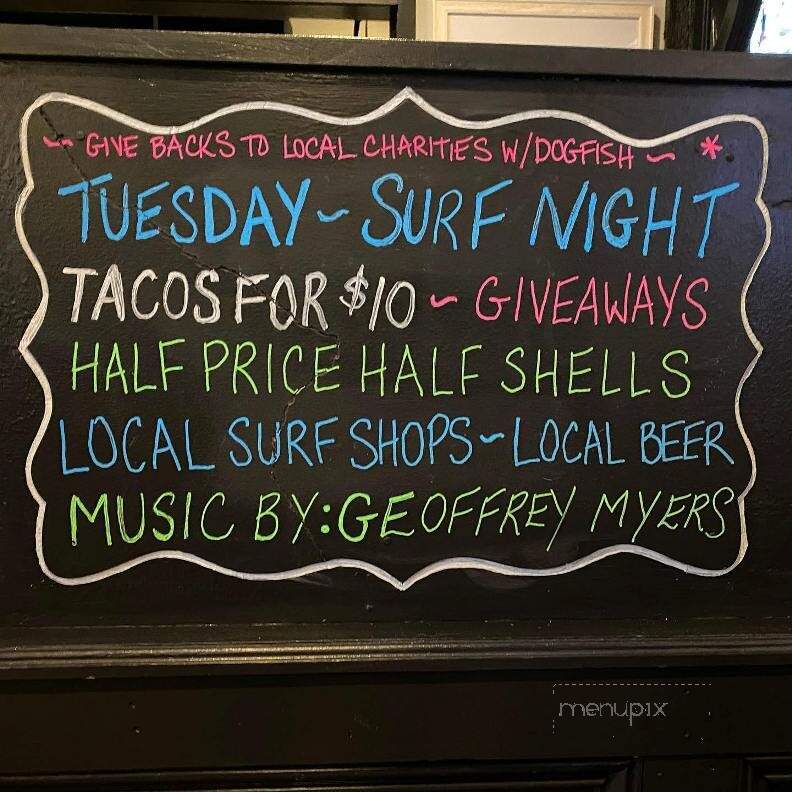 ~ GIVE BACKS TO LOCAL CHARITIES W/DOGFISH ~ *
TUESDAY ~ SURF NIGHT
TACOS FOR $10 ~ GIVEAWAYS
HALF PRICE HALF SHELLS
LOCAL SURF SHOPS ~ LOCAL BEER
MUSIC BY: GEOFFREY MYERS
menupix